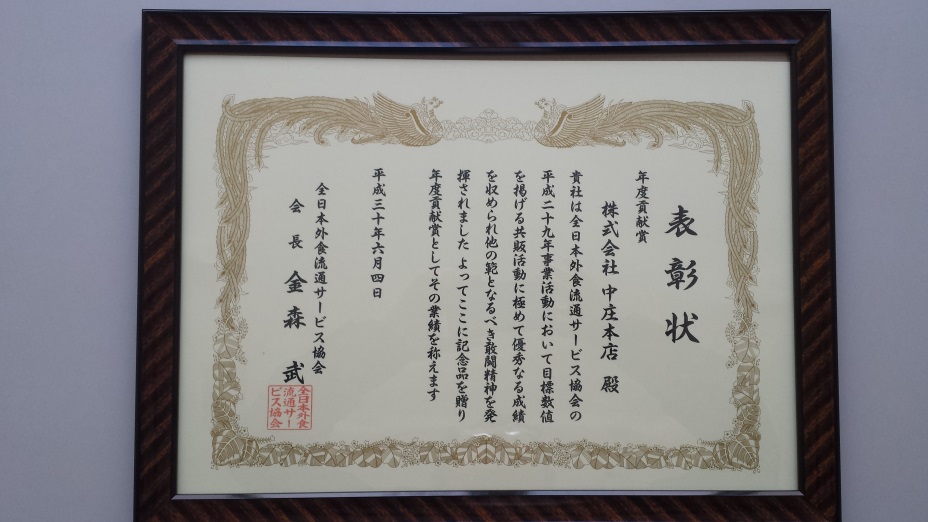 表彰状
年度貢献賞
株式会社 中庄本店 殿
貴社は全日本外食流通サービス協会の
平成二十九年事業活動において目標数値
を掲げる共販活動に極めて優秀なる成績
を収められ他の範となるべき敢闘精神を発
揮されました よってここに記念品を贈り
年度貢献賞としてその業績を称えます
平成三十年六月四日
全日本外食流通サービス協会
会長 金森 武
全日本外食
流通サー
ビス協会